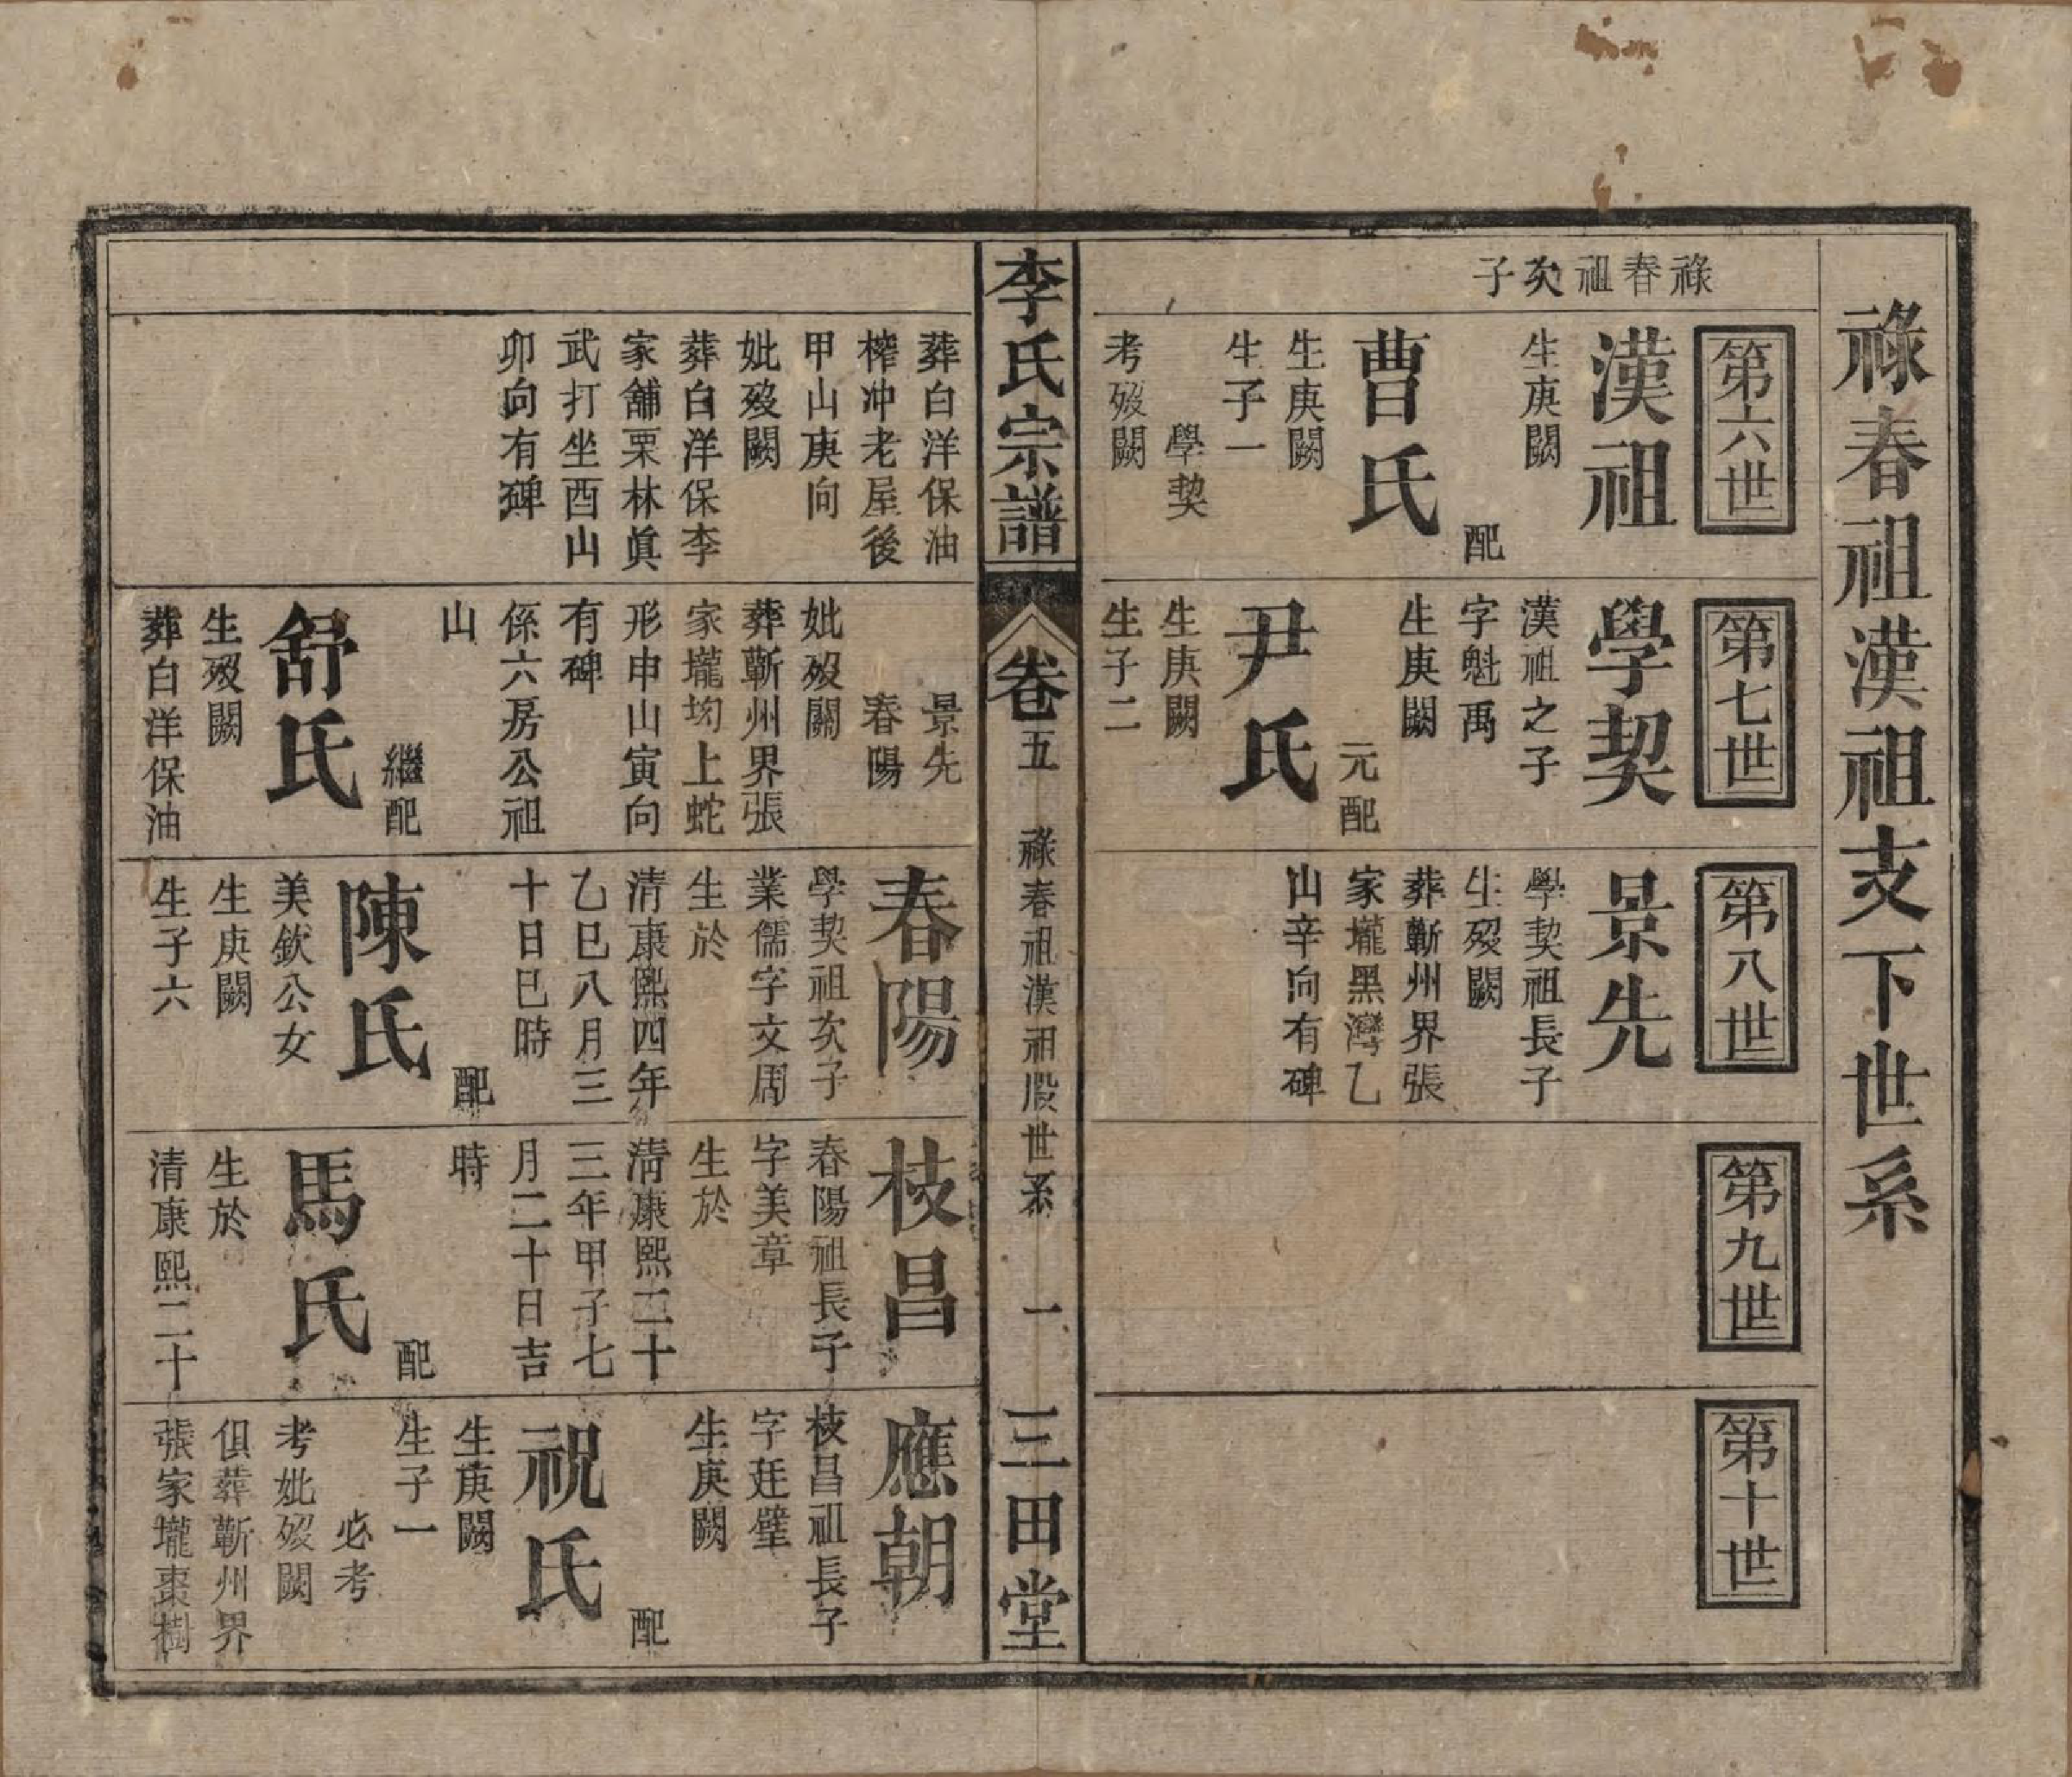 祿春祖漢祖支下世系
祿春祖次子
第六世
漢祖
生庚闕
配
曹氏
生庚闕
生子一
學契
考歿闕
第七世
學契
漢祖之子
字魁禹
生庚闕
元配
尹氏
生庚闕
生子二
第八世
景先
學契祖長子
生歿闕
葬蘄州界張
家壠黑灣乙
山辛向有碑
第九世
第十世
李氏宗譜
卷五
祿春祖漢祖股世系
一
三田堂
葬白洋保油
榨冲老屋後
甲山庚向
妣歿闕
葬白洋保李
家舖栗林眞
武打坐酉山
卯向有碑
景先
春陽
妣歿闕
葬蘄州界張
家壠坳上蛇
形申山寅向
有碑
係六房公祖
山
繼配
舒氏
生歿闕
葬白洋保油
春陽
學契祖次子
業儒字文周
生於
清康熙四年
乙巳八月三
十日巳時
配
陳氏
美欽公女
生庚闕
生子六
枝昌
春陽祖長子
字美章
生於
清康熙二十
三年甲子七
月二十日吉
時
配
馬氏
生於
清康熙二十
應朝
枝昌祖長子
字廷璧
生庚闕
配
祝氏
生庚闕
生子一
必考
考妣歿闕
俱葬蘄州界
張家壠棗樹